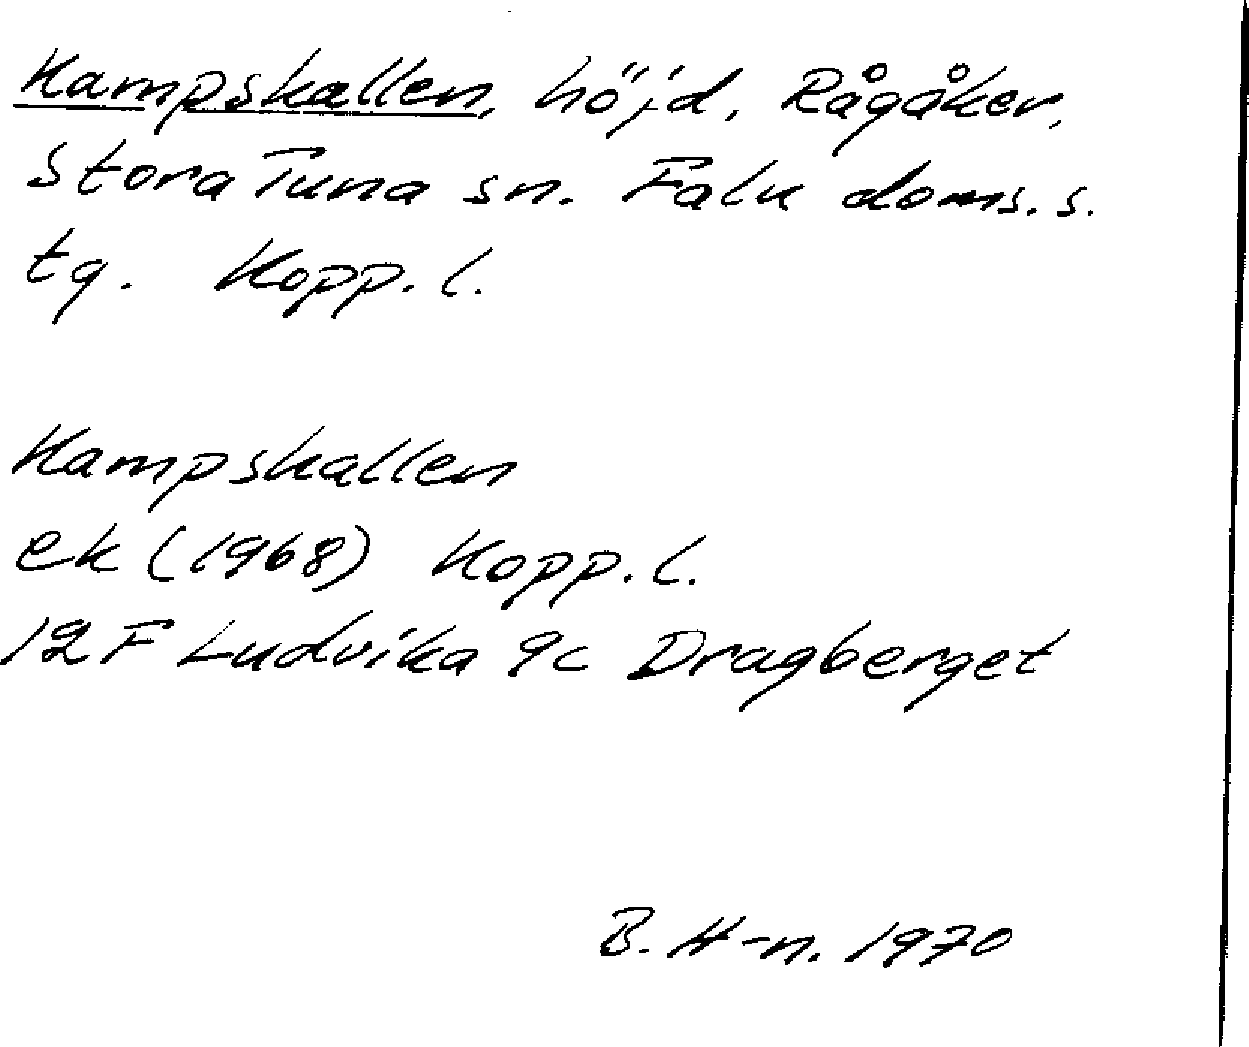 Kampskallen, höjd, Rågåker,
Stora Tuna sn. Falu doms.s.
tg. Kopp.l.
Kampskallen
ek (1968) Kopp.l.
12F Ludvika 9c Dragberget
B. H-n. 1970